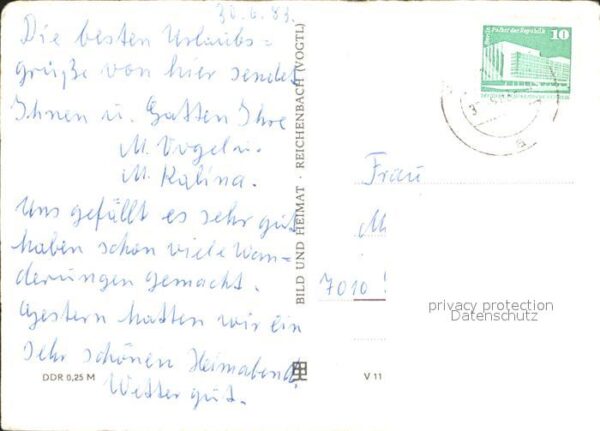 30.6.83.
Die besten Urlaubs=
grüße von hier sendet
Ihnen u. Gatten Ihre
M. Vogel u.
M. Kalina.
Uns gefällt es sehr gut
haben schon viele Wan-
derungen gemacht.
Gestern hatten wir ein
sehr schönen Heimabend,
Wetter gut.
DDR 0,25 M
BILD UND HEIMAT · REICHENBACH (VOGTL)
V 11
Berlin Palast der Republik
10
Frau
M
7010
privacy protection
Datenschutz